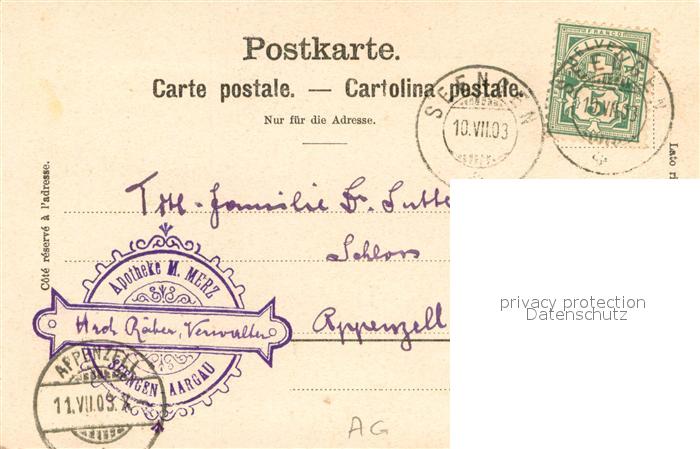 Postkarte.
Carte postale. — Cartolina postale.
Nur für die Adresse.
Côté réservé à l'adresse.
Lato ri
FRANCO
5
SEENGEN
10.VII.03
Familie Dr. Sutte
Schloss
Appenzell
Apotheke M. MERZ
Verwalter
SEENGEN AARGAU
APPENZELL
11.VII.03.
AG
privacy protection
Datenschutz